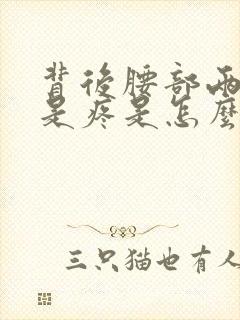 背後腰部兩
是疼是怎麼
三只猫也有人